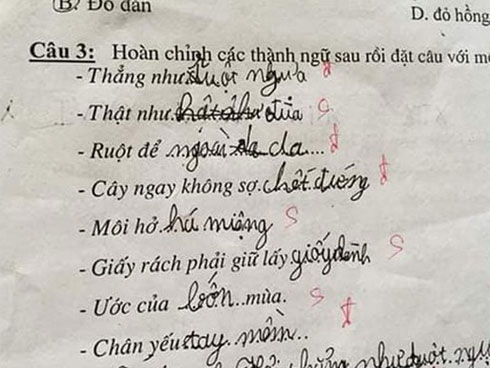 B. Đỏ đắn
D. đỏ hồng
Câu 3: Hoàn chỉnh các thành ngữ sau rồi đặt câu với
- Thẳng như ruột ngựa đ
- Thật như đùa s
- Ruột để ngoài da... đ
- Cây ngay không sợ chết đứng đ
- Môi hở há miệng s
- Giấy rách phải giữ lấy giấy dành s
- Ước của bốn..mùa. s
- Chân yếu tay..mềm.. đ
như ruột